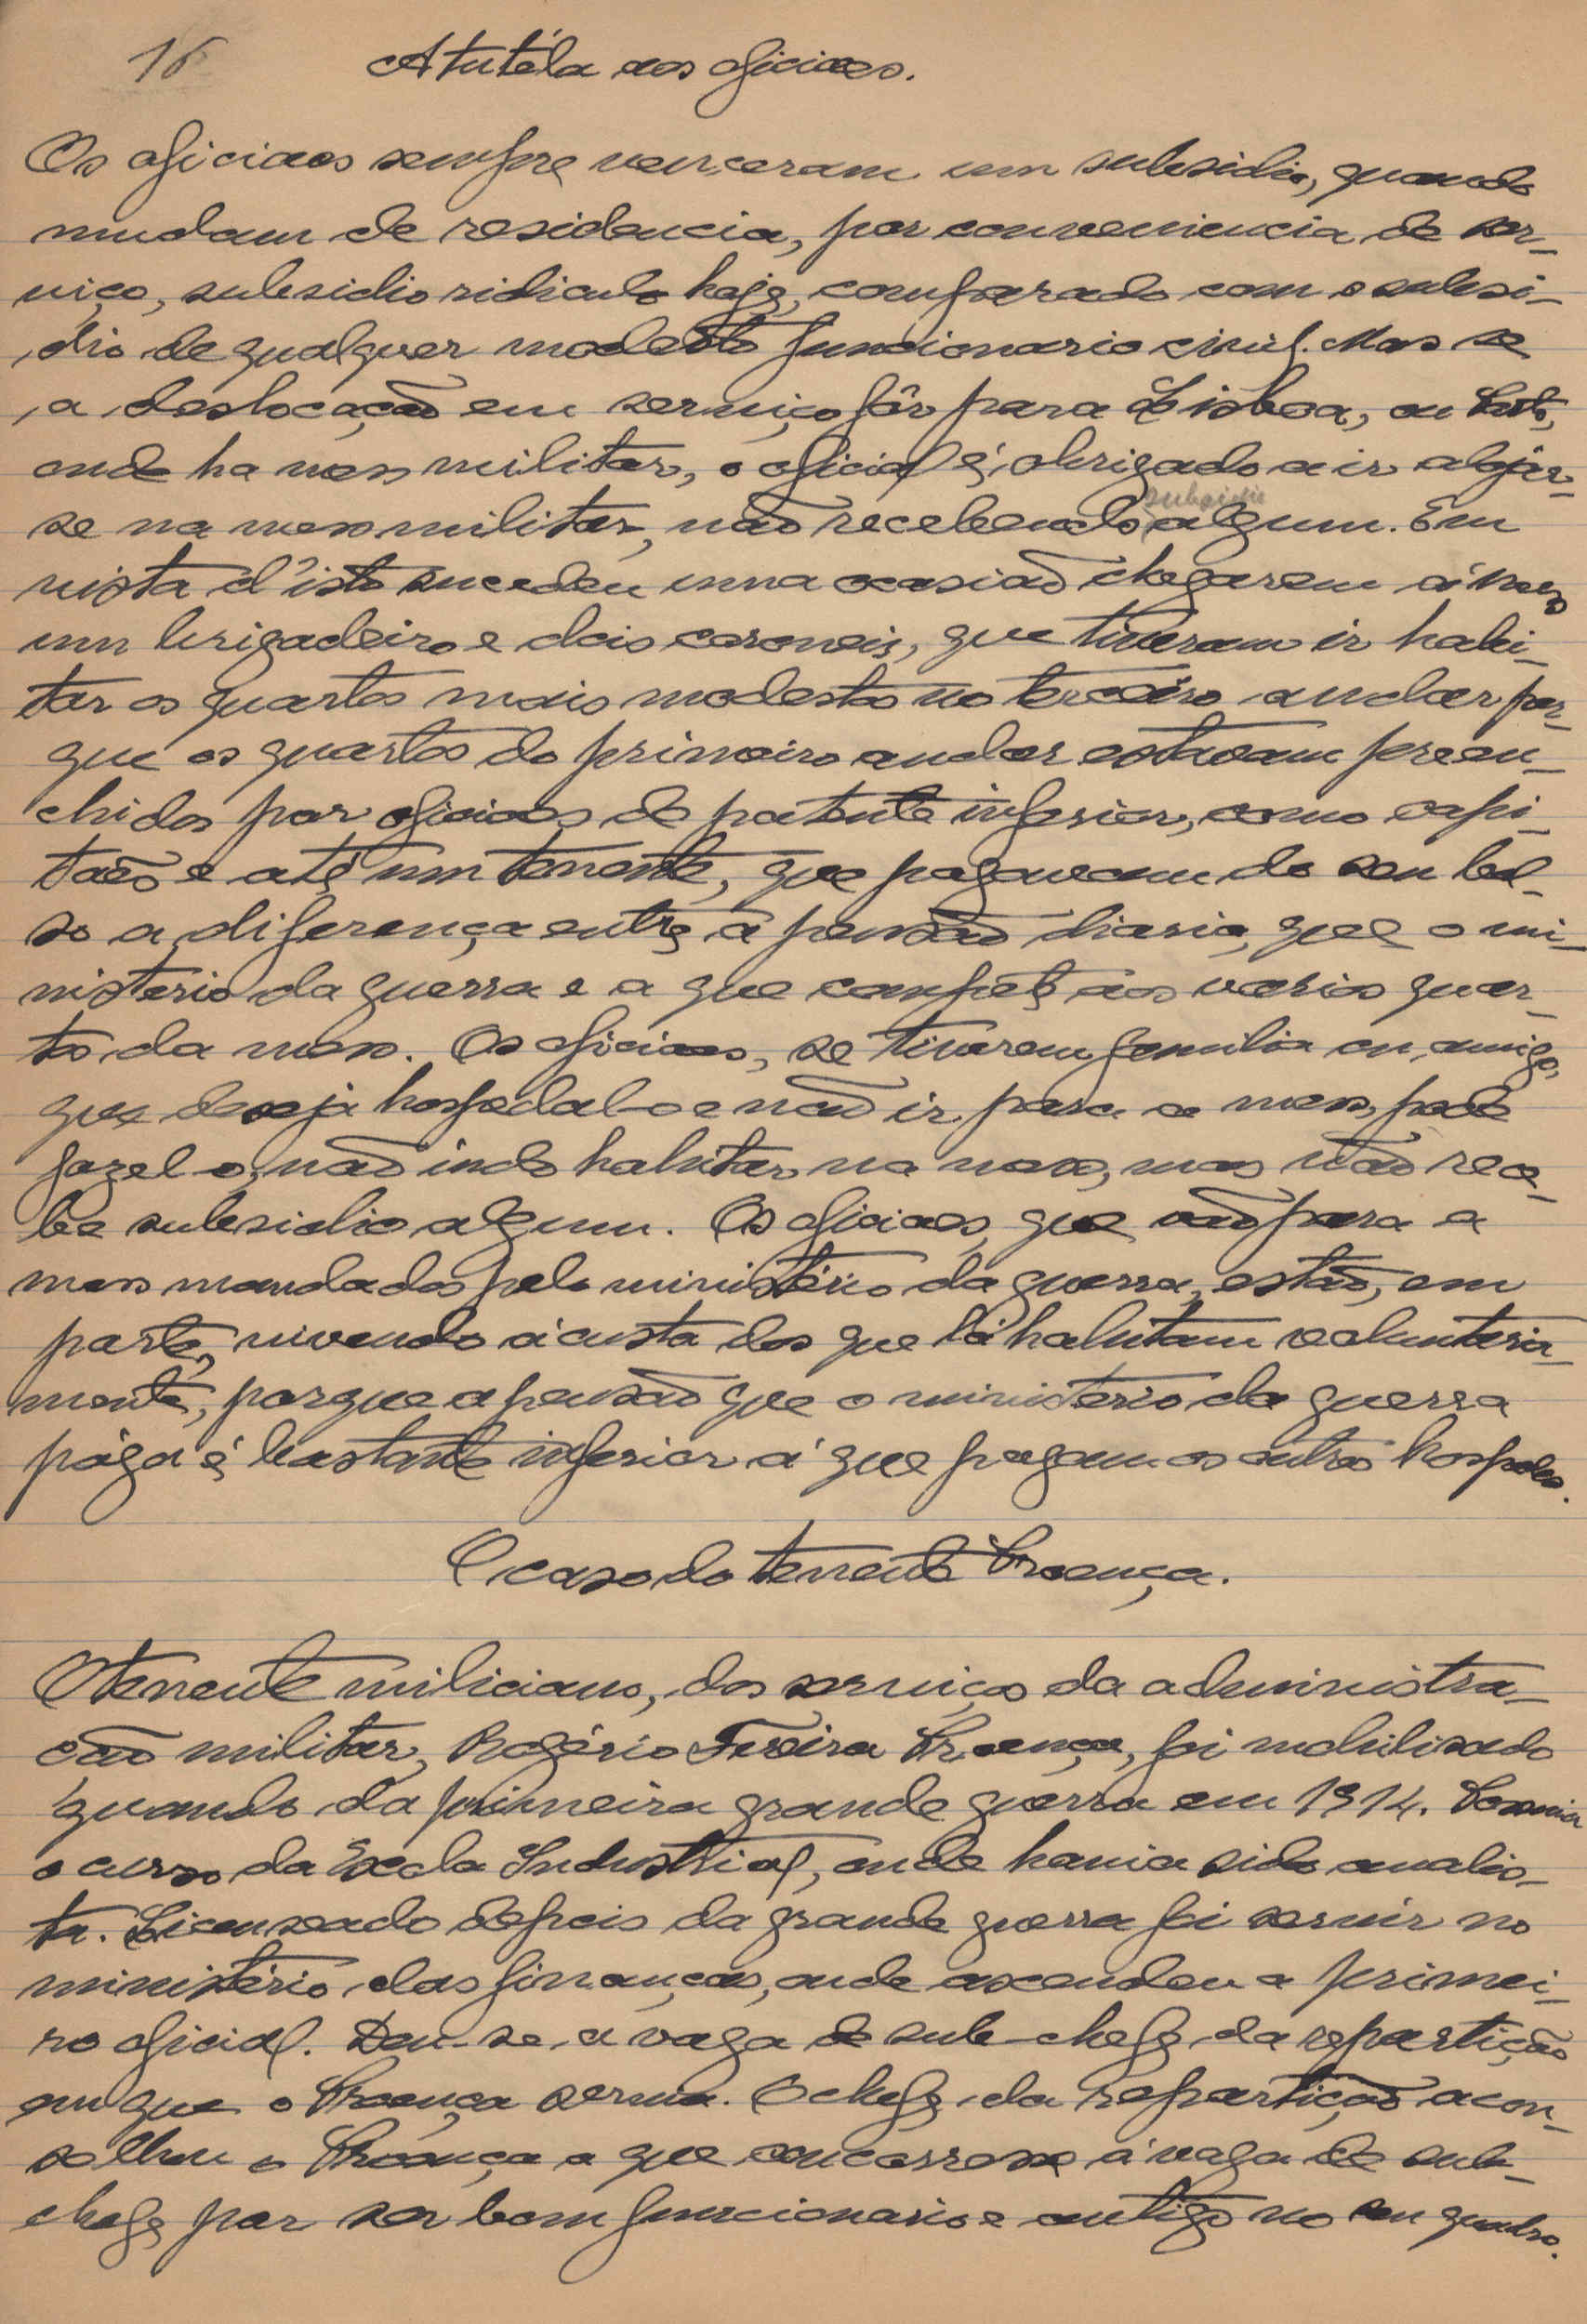 16
A tutéla aos oficiaes.
Os oficiaes sempre venceram um subsidio, quando
mudam de residencia, por conveniencia de ser-
viço, subsidio ridiculo hoje, comparado com o subsi-
dio de qualquer modesto funcionario civil. Mas se
a deslocação em serviço fôr para Lisboa, ou
onde ha mess militar, o oficial é obrigado a ir alojar-
se na mess militar, não recebendo subsidio algum. Em
vista d'isto sucedeu uma ocasião chegarem á mess
um brigadeiro e dois coroneis, que tiveram ir habi-
tar os quartos mais modestos no terceiro andar por-
que os quartos do primeiro andar estavam preen-
chidos por oficiaes de patente inferior, como capi-
tães e até um tenente, que pagavam do seu bol-
so a diferença entre a pensão diaria, que o mi-
nisterio da guerra e a que compete aos varios quar-
tos da mess. Os oficiaes, se tiverem familia ou amigo,
que deseja hospedal-o e não ir para a mess, pode
fazel-o, não indo habitar na mess, mas não rece-
be subsidio algum. Os oficiaes, que vão para a
mess mandados pelo ministério da guerra, estão, em
parte, vivendo á custa dos que lá habitam voluntaria-
mente, porque a pensão que o ministerio da guerra
paga é bastante inferior á que pagam os outros hospedes.
O caso do tenente Proença.
O tenente miliciano, dos serviços da administra-
ção militar, Rogério Ferreira Proença, foi mobilisado
quando da primeira grande guerra em 1914. Possuia
o curso da Escola Industrial, onde havia sido analis-
ta. Licenseado depois da grande guerra foi servir no
ministério das finanças, onde ascendeu a primei-
ro oficial. Deu-se a vaga de sub-chefe da repartição
em que o Proença servia. O chefe da repartição acon-
selhou o Proença a que concorresse á vaga de sub-
chefe por ser bom funcionario e antigo no seu quadro.